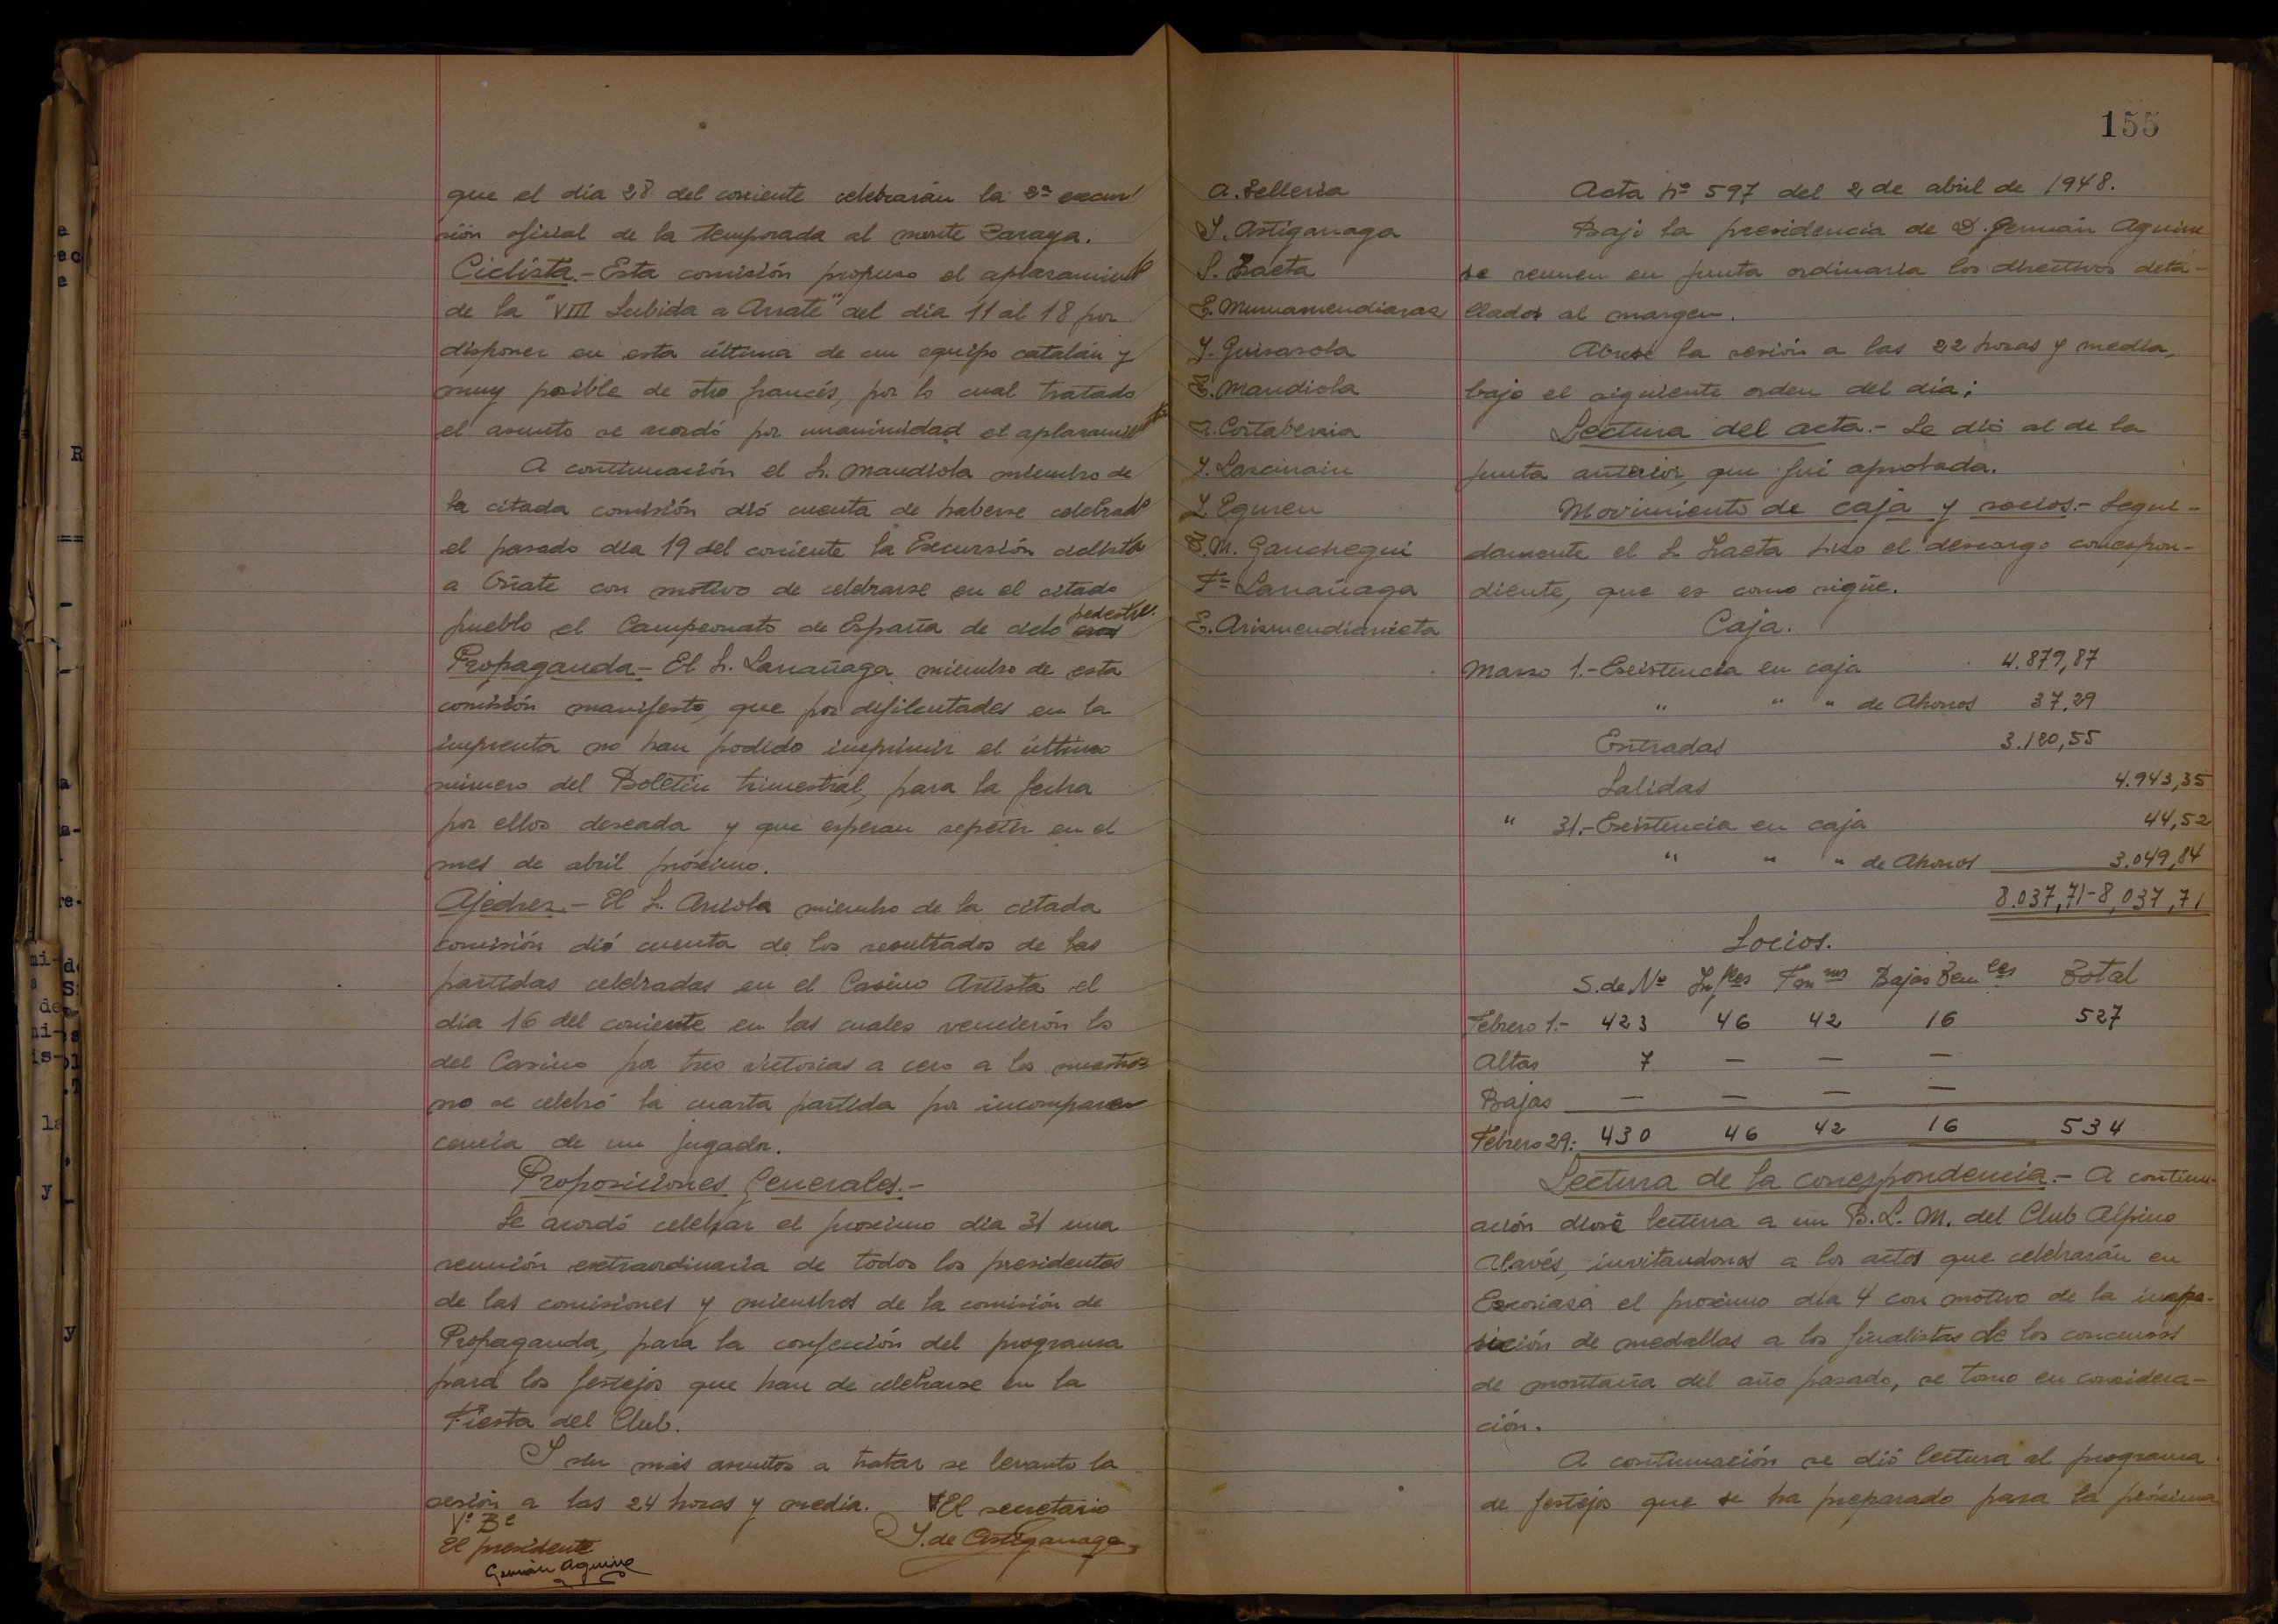 que el día 28 del corriente celebrarán la 2ª excur
sión oficial de la temporada al monte Zaraya.
Ciclista.- Esta comisión propuso el aplazamiento
de la "VIII Subida a Arrate" del día 11 al 18 por
disponer en esta última de un equipo catalán y
muy posible de otro francés, por lo cual tratado
el asunto se acordó por unanimidad el aplazamiento
A continuación el S. Mandiola miembro de
la citada comisión dió cuenta de haberse celebrado
el pasado día 19 del corriente la Excursión ciclista
a Oñate con motivo de celebrarse en el citado
pueblo el Campeonato de España de ciclo cross pedestre.
Propaganda.- El S. Larrañaga miembro de esta
comisión manifesto, que por dificultades en la
imprenta no han podido imprimir el último
número del Boletín trimestral, para la fecha
por ellos deseada y que esperan repetir en el
mes de abril próximo.
Ajedrez.- El S. Arriola miembro de la citada
comisión dió cuenta de los resultados de las
partidas celebradas en el Casino Artista el
día 16 del corriente en las cuales vencierón lo
del Casino por tres victorias a cero a los nuestros
no se celebró la cuarta partida por incompare
cencia de un jugador.
Proposiciones Generales.-
Se acordó celebrar el proximo día 31 una
reunión extraordinaria de todos los presidentes
de las comisiones y miembros de la comisión de
Propaganda, para la confección del programa
para los festejos que han de celebrarse en la
Fiesta del Club.
Y sin más asuntos a tratar se levanto la
sesión a las 24 horas y media. El secretario
Vº Bº
El presidente
Germán Aguirre
Y. de Astiganaga
155
A. Telleria
Y. Astiganaga
S. Zaeta
E. Muruamendiaraz
Y. Guisasola
E. Mandiola
Cortaberria
Y. Lascurain
Y. Eguren
M. Ganchegui
Fº Larrañaga
E. Arismendiarrieta
Acta nº 597 del 2 de abril de 1948.
Bajo la presidencia de D. Germán Aguirre
se reunen en junta ordinaria los directivos deta-
llados al margen.
Abrese la sesión a las 22 horas y media,
bajo el siguiente orden del día;
Lectura del acta.- Se dió al de la
junta anterior, que fué aprobada.
Movimiento de caja y socios.- Segui-
damente el S. Zaeta hizo el descargo correspon-
diente, que es como sigue.
Caja.
Marzo 1.- Existencia en caja 4.879,87
" " " de Ahorros 37,29
Entradas 3.120,55
Salidas 4.943,35
" 31.- Existencia en caja 44,52
" " " de Ahorros 3.049,84
8.037,71-8,037,71
Socios.
S. de Nº Inf.les Fem.nos Bajas Tem.les Total
Febrero 1.- 423 46 42 16 527
Altas 7 — — —
Bajas — — — —
Febrero 29.- 430 46 42 16 534
Lectura de la correspondencia.- A continu-
ación diose lectura a un B.L.M. del Club Alpino
Alavés, invitandonos a los actos que celebrarán en
Escoriasa el proximo día 4 con motivo de la impo-
sición de medallas a los finalistas de los concursos
de montaña del año pasado, se tomo en considera-
ción.
A continuación se dió lectura al programa
de festejos que se ha preparado para la próxima